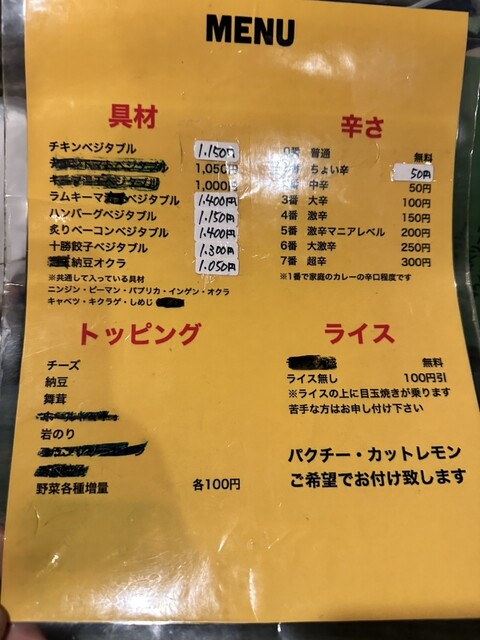 MENU
具材
チキンベジタブル 1.150円
1,050円
1,000円
ラムキーマ ベジタブル 1.400円
ハンバーグベジタブル 1.150円
炙りベーコンベジタブル 1.400円
十勝餃子ベジタブル 1.300円
納豆オクラ 1.050円
※共通して入っている具材
ニンジン・ピーマン・パプリカ・インゲン・オクラ
キャベツ・キクラゲ・しめじ
辛さ
0番 普通 無料
ちょい辛 50円
中辛 50円
3番 大辛 100円
4番 激辛 150円
5番 激辛マニアレベル 200円
6番 大激辛 250円
7番 超辛 300円
※1番で家庭のカレーの辛口程度です
トッピング
チーズ
納豆
舞茸
岩のり
野菜各種増量 各100円
ライス
無料
ライス無し 100円引
※ライスの上に目玉焼きが乗ります
苦手な方はお申し付け下さい
パクチー・カットレモン
ご希望でお付け致します